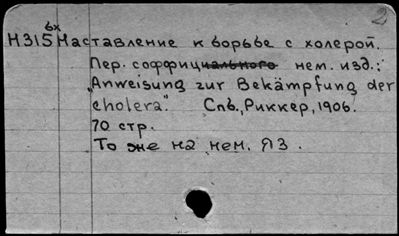 2
6х
Н315 Наставление к борьбе с холерой.
Пер. с оффициального нем. изд.:
„Анweisung zur Bekämpfung der
cholera". Спб., Риккер, 1906.
70 стр.
То же на нем. яз.